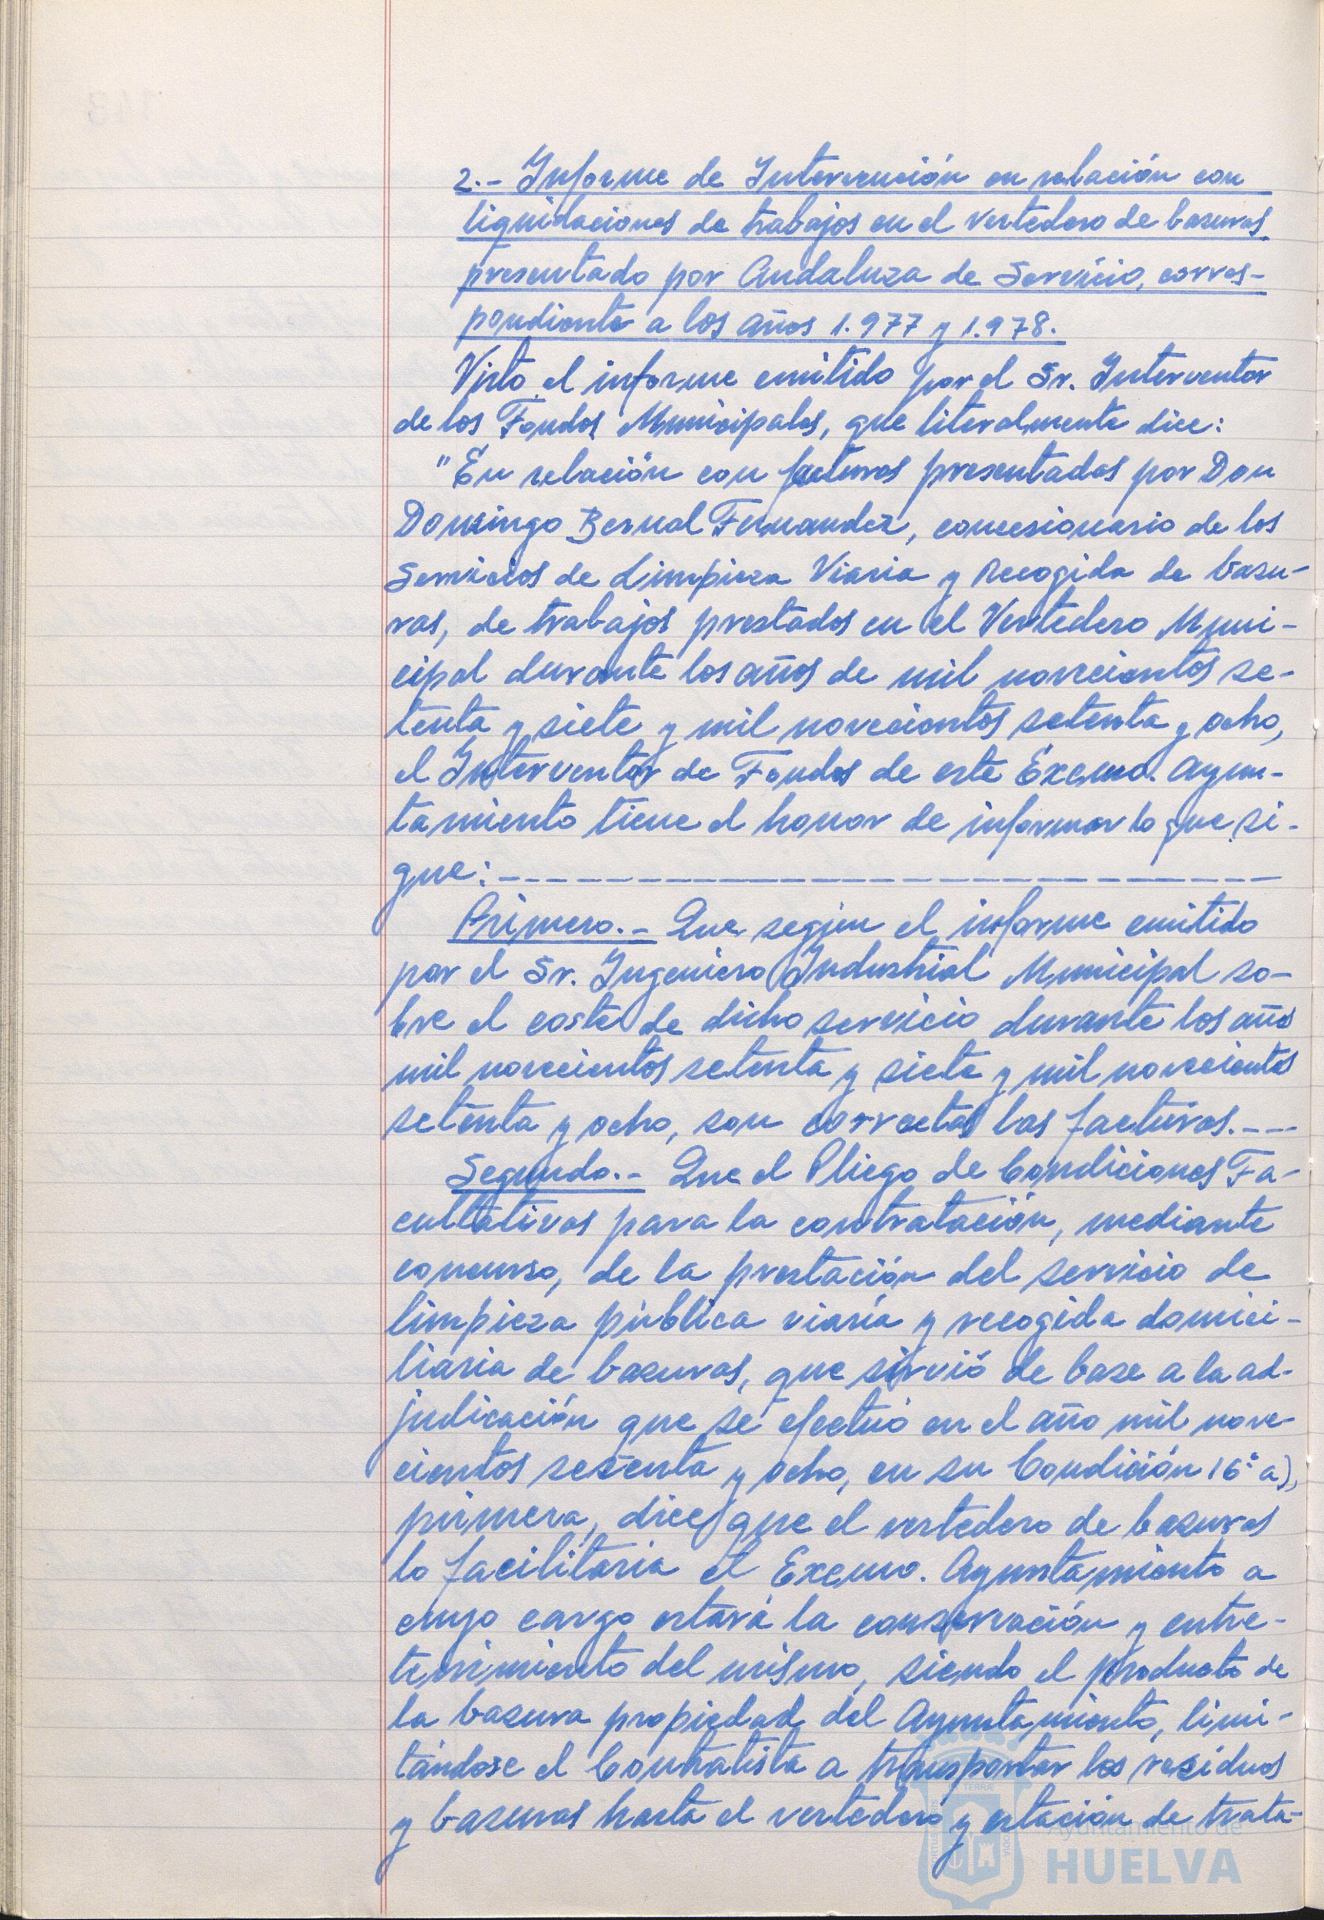 2.- Informe de Intervención en relación con
liquidaciones de trabajos en el vertedero de basuras,
presentado por Andaluza de Servicio, corres-
pondiente a los años 1.977 y 1.978.
Visto el informe emitido por el Sr. Interventor
de los Fondos Municipales, que literalmente dice:
"En relación con facturas presentadas por Don
Domingo Bernal Fernandez, concesionario de los
Servicios de Limpieza Viaria y Recogida de basu-
ras, de trabajos prestados en el Vertedero Muni-
cipal durante los años de mil novecientos se-
tenta y siete y mil novecientos setenta y ocho,
el Interventor de Fondos de este Excmo. Ayun-
tamiento tiene el honor de informar lo que si-
gue:
Primero.- Que según el informe emitido
por el Sr. Ingeniero Industrial Municipal so-
bre el coste de dicho servicio durante los años
mil novecientos setenta y siete y mil novecientos
setenta y ocho, son correctas las facturas.---
Segundo.- Que el Pliego de Condiciones Fa-
cultativas para la contratación, mediante
concurso, de la prestación del servicio de
limpieza pública viaria y recogida domici-
liaria de basuras, que sirvió de base a la ad-
judicación que se efectuó en el año mil nove-
cientos sesenta y ocho, en su Condición 16ª a),
primera, dice que el vertedero de basuras
lo facilitaria el Excmo. Ayuntamiento a
cuyo cargo estará la conservación y entre-
tenimiento del mismo, siendo el producto de
la basura propiedad del Ayuntamiento, limi-
tándose el Contratista a transportar los residuos
y basuras hasta el vertedero y estación de trata-
Ayuntamiento de
HUELVA